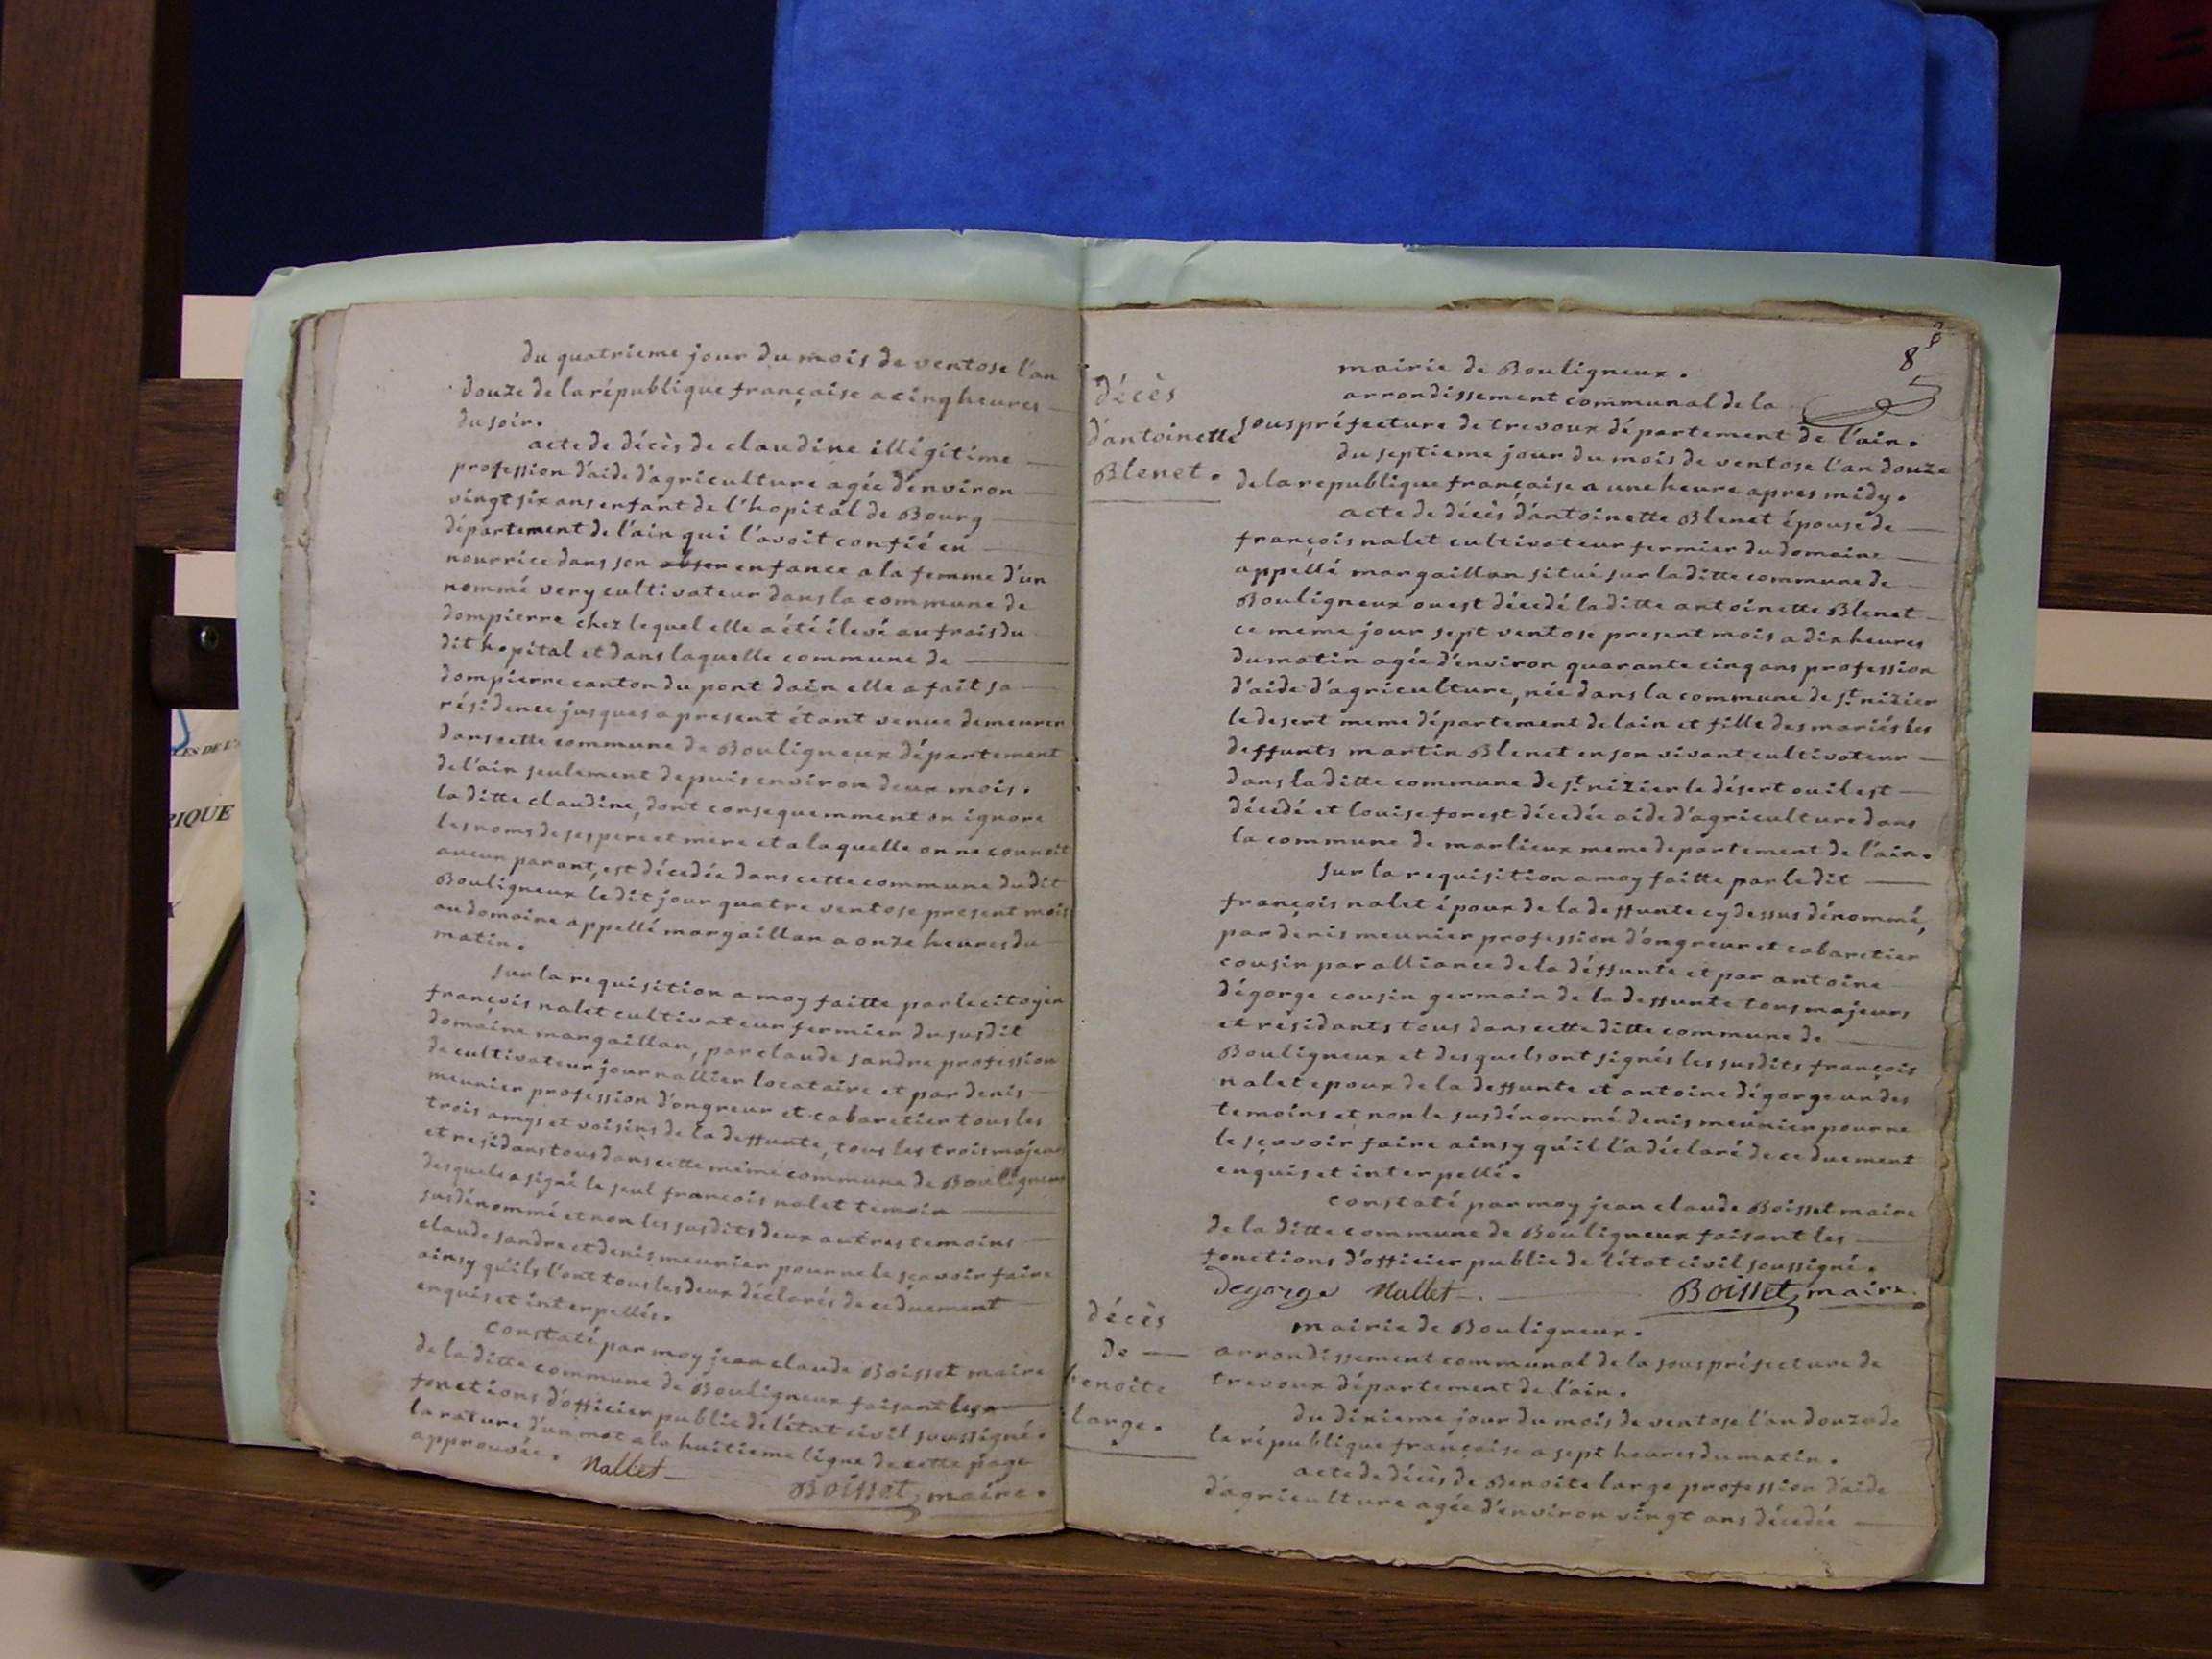 du quatrieme jour du mois de ventose l'an
douze de la république française a cinq heures
du soir.
acte de décès de claudine illégitime
profession d'aide d'agriculture agée d'environ
vingt six ans enfant de l'hopital de Bourg
département de l'ain qui l'avoit confié en
nourrice dans son enfance a la femme d'un
nommé very cultivateur dans la commune de
dompierre chez lequel elle a été élevé au frais du
dit hopital et dans laquelle commune de
dompierre canton du pont dain elle a fait sa
résidence jusques a present étant venue demeurer
dans cette commune de Bouligneux département
de l'ain seulement depuis environ deux mois.
la ditte claudine, dont consequemment on ignore
les noms de ses pere et mere et a laquelle on ne connoit
aucun parant, est décedée dans cette commune du dit
Bouligneux le dit jour quatre ventose present mois
au domaine appellé margaillan a onze heures du
matin.
sur la requisition a moy faitte par le citoyen
françois nalet cultivateur fermier du susdit
domaine margaillan, par claude sandre profession
de cultivateur journallier locataire et par denis
meunier profession d'ongreur et cabaretier tous les
trois amys et voisins de la deffunte, tous les trois majeurs
et residans tous dans cette même commune de Bouligneux
desquels a signé le seul francois nalet temoin
susdénommé et non les susdits deux autres temoins
claude sandre et denis meunier pour ne le sçavoir faire
ainsy qu'ils l'ont tous les deux déclarés de ce duement
enquis et interpellés.
constaté par moy jean claude Boisset maire
de la ditte commune de Bouligneux faisant les
fonctions d'officier public de l'état civil soussigné.
la rature d'un mot a la huitieme ligne de cette page
approuvée. Nallet
Boisset maire.
8
mairie de Bouligneux.
décès
d'antoinette
Blenet.
arrondissement communal de la
souspréfecture de trevoux département de l'ain.
du septieme jour du mois de ventose l'an douze
de la republique française a une heure apres midy.
acte de décès d'antoinette Blenet épouse de
françois nalet cultivateur fermier du domaine
appellé margaillan situé sur la ditte commune de
Bouligneux ou est décedé la ditte antoinette Blenet
ce meme jour sept ventose present mois a dix heures
du matin agée d'environ quarante cinq ans profession
d'aide d'agriculture, née dans la commune de st. nizier
le desert meme département de lain et fille des mariés les
deffunts martin Blenet en son vivant cultivateur
dans la ditte commune de st. nizier le désert ou il est
décedé et louise forest décedée aide d'agriculture dans
la commune de marlieux meme departement de l'ain.
sur la requisition a moy faitte par le dit
françois nalet époux de la deffunte cy dessus dénommé,
par denis meunier profession d'ongreur et cabaretier
cousin par alliance de la déffunte et par antoine
dégorge cousin germain de la deffunte tous majeurs
et résidants tous dans cette ditte commune de
Bouligneux et desquels ont signés les susdits françois
nalet epoux de la deffunte et antoine dégorge un des
temoins et non le susdénommé denis meunier pour ne
le sçavoir faire ainsy qu'il l'a déclaré de ce duement
enquis et interpellé.
constaté par moy jean claude Boisset maire
de la ditte commune de Bouligneux faisant les
fonctions d'officier public de l'état civil soussigné.
Degorge Nallet Boisset maire.
décès
de
benoite
large.
mairie de Bouligneux.
arrondissement communal de la souspréfecture de
trevoux département de l'ain.
du dixieme jour du mois de ventose l'an douze de
la république française a sept heures du matin.
acte de décès de Benoite large profession d'aide
d'agriculture agée d'environ vingt ans décedée